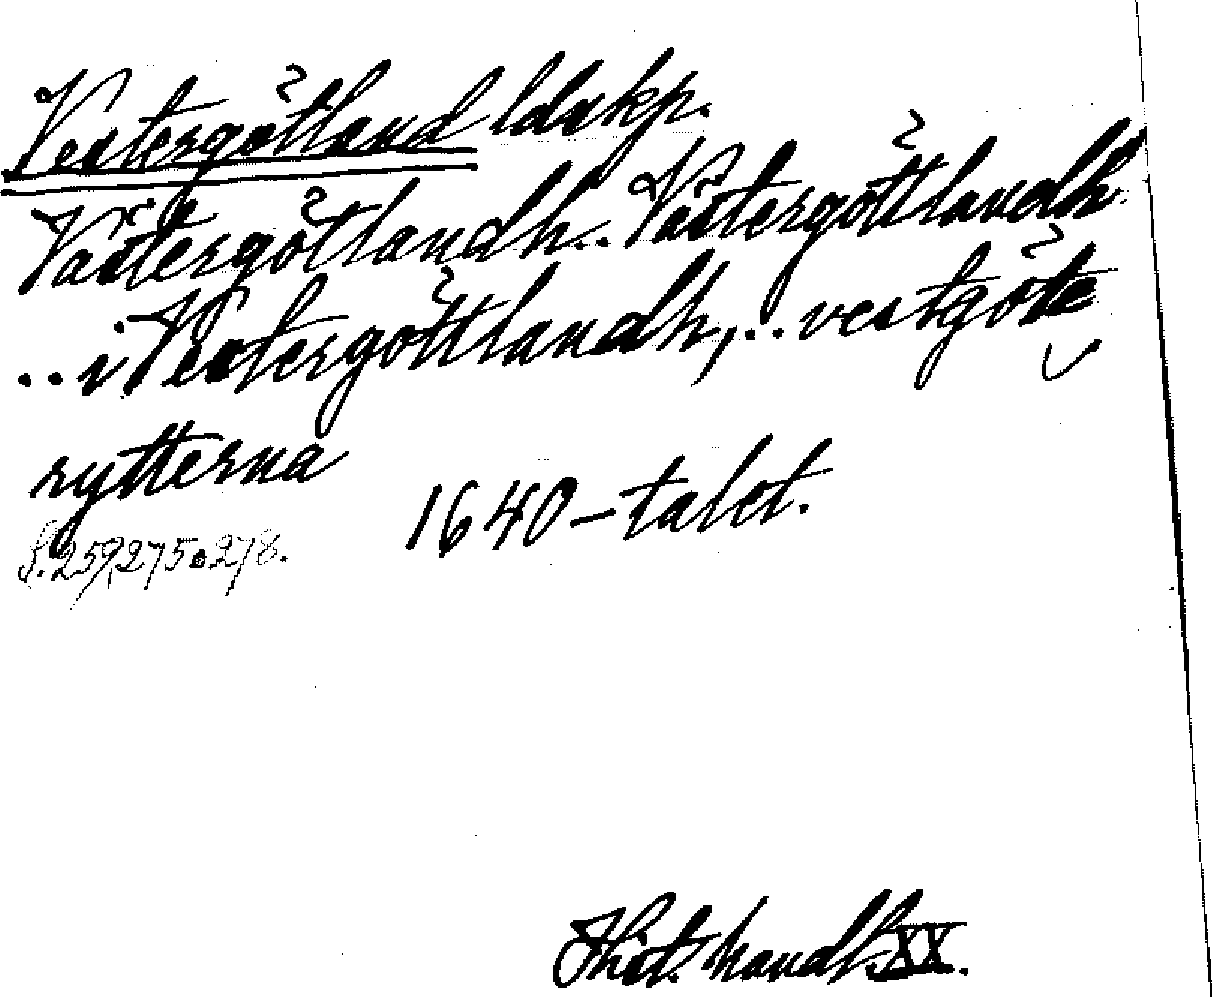 Vestergötland ldskp.
Västergötlandh.. Västergöttlandh
.. i Vestergöttlandh, .. vestgöte
rytterna
1640-talet.
S. 259, 275 o 278.
Hist. handl. XX.